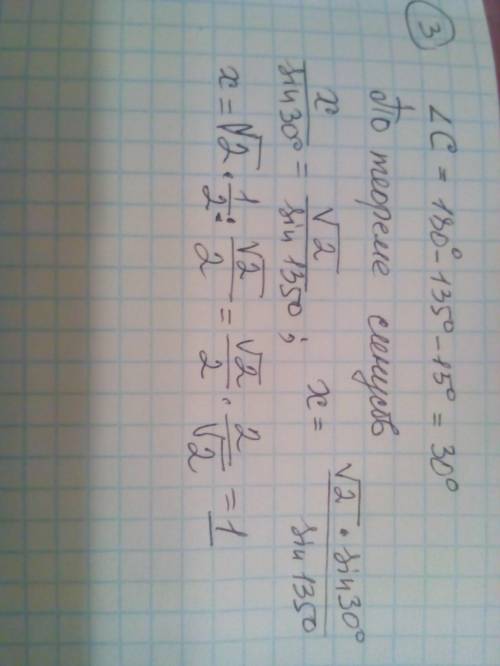 ③ ∠C = 180° - 135° - 15° = 30°
По теореме синусов
x/sin30° = √2/sin135°; x = √2 · sin30°/sin135°
x = √2 · 1/2 : √2/2 = √2/2 · 2/√2 = 1